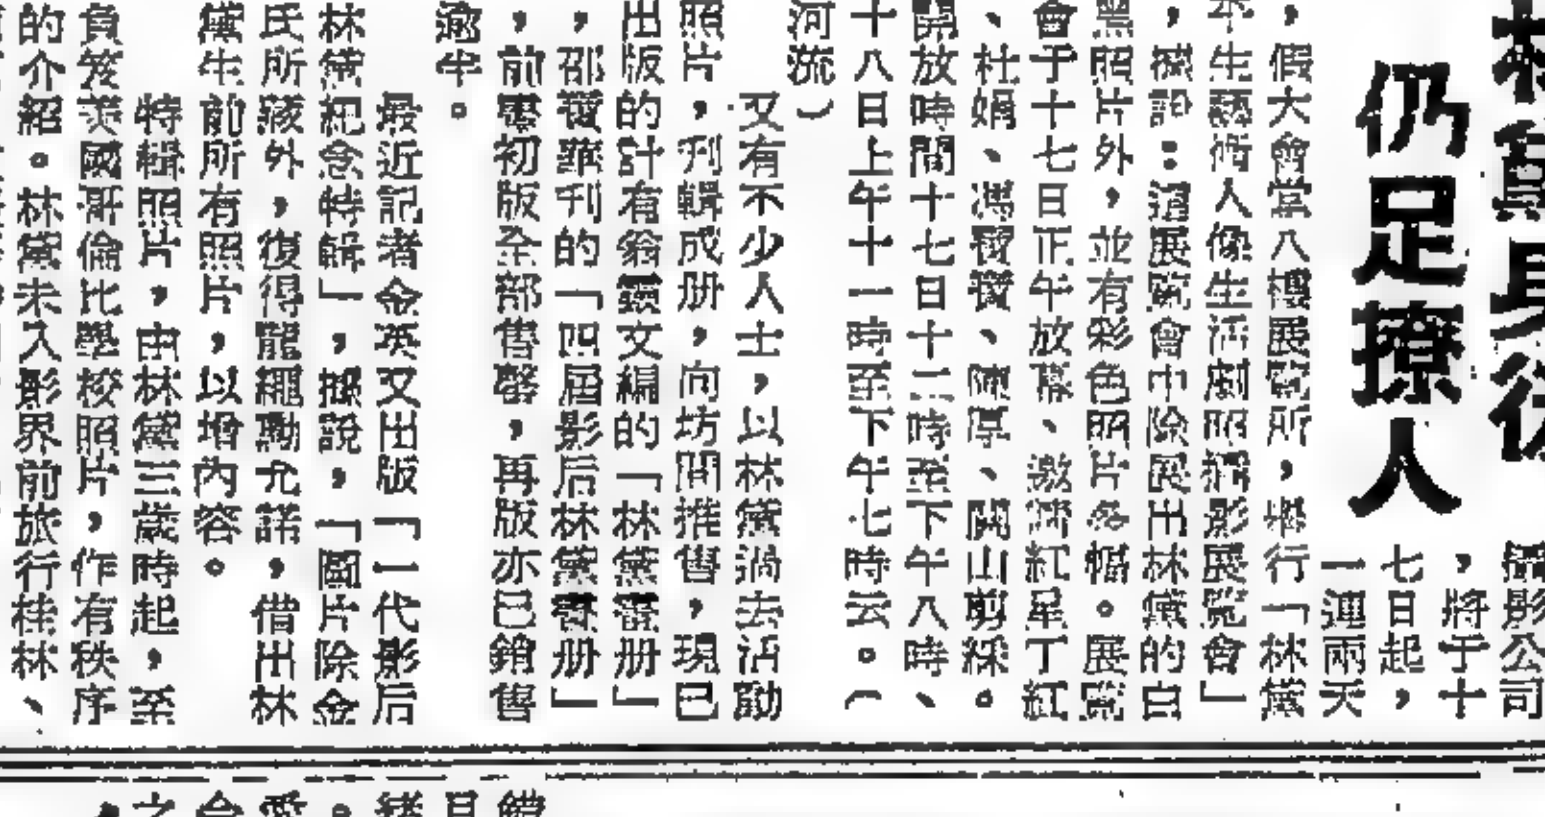 林黛身後
仍足撩人
攝影公司
，將于十
七日起，
一連兩天
，假大會堂八樓展覽所，舉行「林黛
生藝術人像生活劇照攝影展覽會」
，據說：這展覽會中除展出林黛的白
黑照片外，並有彩色照片多幅。展覽
會于十七日正午放幕、邀請紅星丁紅
、杜娟、馮寶寶、陳厚、關山剪綵。
開放時間十七日十二時至下午八時、
十八日上午十一時至下午七時云。（
河流）
又有不少人士，以林黛過去活動
照片，刋輯成册，向坊間推售，現已
出版的計有翁靈文編的「林黛畫册」
，邵寶華刋的「四屆影后林黛畫册」
，前零初版全部售罄，再版亦已銷售
逾半。
最近記者金英又出版「一代影后
林黛紀念特輯」，據說，「圖片除金
氏所藏外，復得龍繩勳允諾，借出林
黛生前所有照片，以增內容。
特輯照片，由林黛三歲時起，至
負笈美國哥倫比學校照片，作有秩序
的介紹。林黛未入影界前旅行桂林、